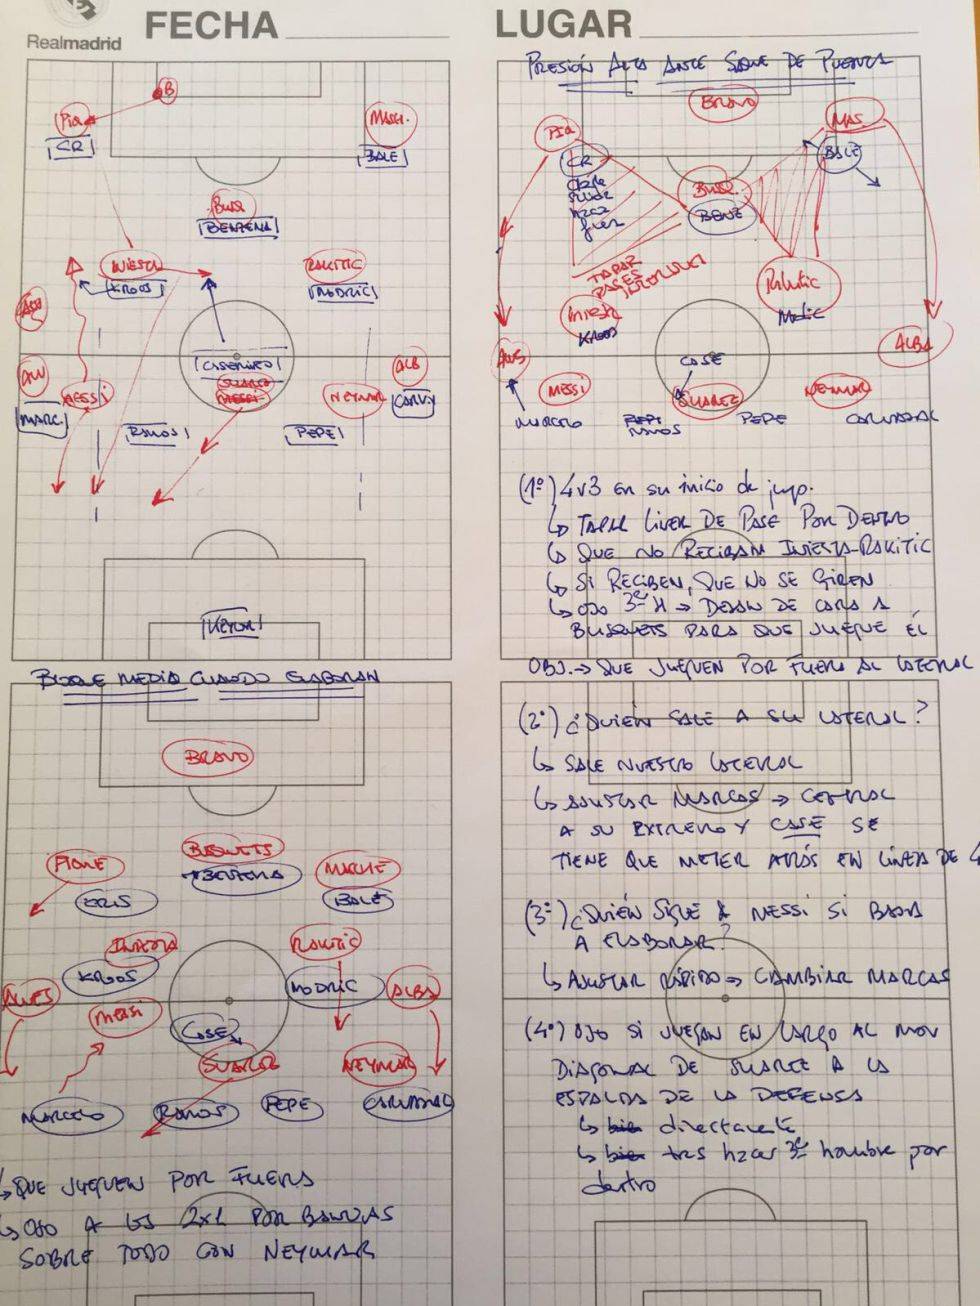 Realmadrid
FECHA
LUGAR
B
PIQ
CR
MASCH.
BALE
BUSQ
BENZEMA
INIESTA
KROOS
RAKITIC
MODRIC
CASEMIRO
SUAREZ
MESSI
MESSI
NEYMAR
ALB
MARC
CARV
RAMOS
PEPE
KEYLOR
PRESIÓN ALTA ANTE SAQUE DE PUERTA
BRAVO
PIQ
MAS.
CR
BALE
BUSQ.
BENZ
TAPAR
PASES
INTERIORES
Iniesta
KROOS
Rakitic
Modric
ALBA
CASE
MESSI
SUAREZ
NEYMAR
MARCELO
RAMOS
PEPE
CARVAJAL
(1º) 4v3 en su inicio de jug.
↳ TAPAR LINEA DE PASE POR DENTRO
↳ QUE NO RECIBAN INIESTA-RAKITIC
↳ SI RECIBEN, QUE NO SE GIREN
↳ OJO 3er H → DEJAN DE CARA A
BUSQUETS PARA QUE JUEGUE ÉL
OBJ. → QUE JUEGUEN POR FUERA AL LATERAL
BLOQUE MEDIO CUANDO ELABORAN
BRAVO
PIQUE
CRIS
BUSQUETS
BENZEMA
MASCHE
BALE
INIESTA
KROOS
RAKITIC
MODRIC
ALVES
ALBA
MESSI
CASE
SUAREZ
NEYMAR
MARCELO
RAMOS
PEPE
CARVAJAL
↳ QUE JUEGUEN POR FUERA
↳ OJO A LOS 2x1 POR BANDAS
SOBRE TODO CON NEYMAR
(2º) ¿QUIÉN SALE A SU LATERAL?
↳ SALE NUESTRO LATERAL
↳ AJUSTAR MARCAS → CENTRAL
A SU EXTREMO Y CASE SE
TIENE QUE METER ATRÁS EN LÍNEA DE 4
(3º) ¿QUIÉN SIGUE A MESSI SI BAJA
A ELABORAR?
↳ AJUSTAR RÁPIDO → CAMBIAR MARCAS
(4º) OJO SI JUEGAN EN LARGO AL MOV
DIAGONAL DE SUAREZ A LA
ESPALDA DE LA DEFENSA
↳ bien directamente
↳ bien tras hacer 3er hombre por
dentro